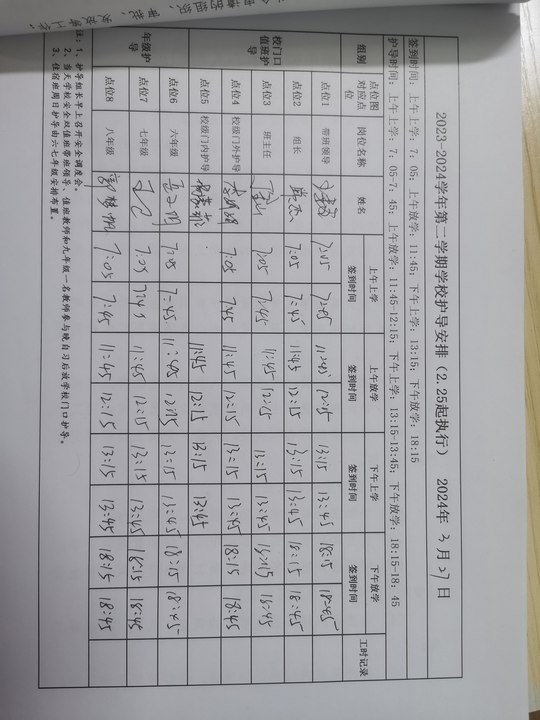 2023-2024学年第二学期学校护导安排（2.25起执行） 2024年 3月27日
签到时间：上午上学：7：05；上午放学：11:45；下午上学：13:15；下午放学：18:15
护导时间：上午上学：7：05-7：45；上午放学：11:45-12:15；下午上学：13:15-13:45；下午放学：18:15-18：45
组别 点位图对应点位 岗位名称 姓名 上午上学签到时间 上午放学签到时间 下午上学签到时间 下午放学签到时间 工时记录
校门口值班护导 点位1 带班领导 7:05 7:45 11:45 12:15 13:15 13:45 18:15 18:45
点位2 组长 7:05 7:45 11:45 12:15 13:15 13:45 18:15 18:45
点位3 班主任 7:05 7:45 11:45 12:15 13:15 13:45 18:45
点位4 校级门外护导 7:05 7:45 11:45 12:15 13:15 13:45 18:15 18:45
点位5 校级门内护导 11:45 12:15 13:15 13:45
年级护导 点位6 六年级 7:05 7:45 11:45 12:15 13:15 13:45 18:15 18:45
点位7 七年级 7:05 7:45 11:45 12:15 13:15 13:45 18:15 18:45
点位8 八年级 7:05 7:45 11:45 12:15 13:15 13:45 18:15 18:45
注：1、护导组长早上召开安全调度会。
2、当天学校安全双值班带班领导、值班教师和九年级一名教师参与晚自习后放学校门口护导。
3、住宿班周日护导由六七年级安排布置。